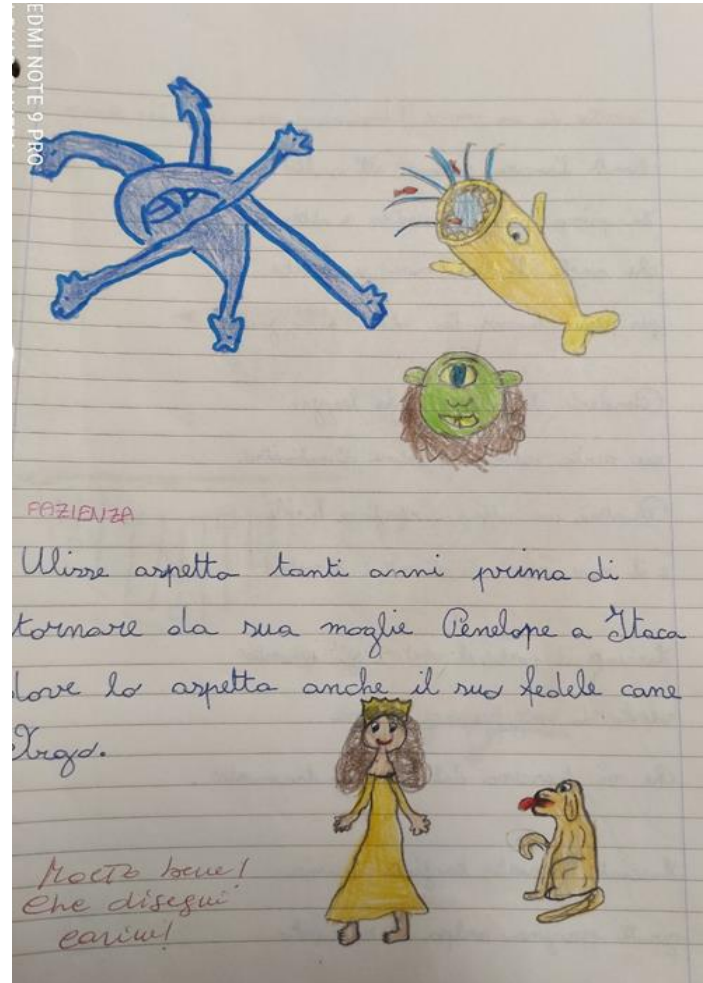 REDMI NOTE 9 PRO
PAZIENZA
Ulisse aspetta tanti anni prima di
tornare da sua moglie Penelope a Itaca
dove lo aspetta anche il suo fedele cane
Argo.
Molto bene!
Che disegni
carini!